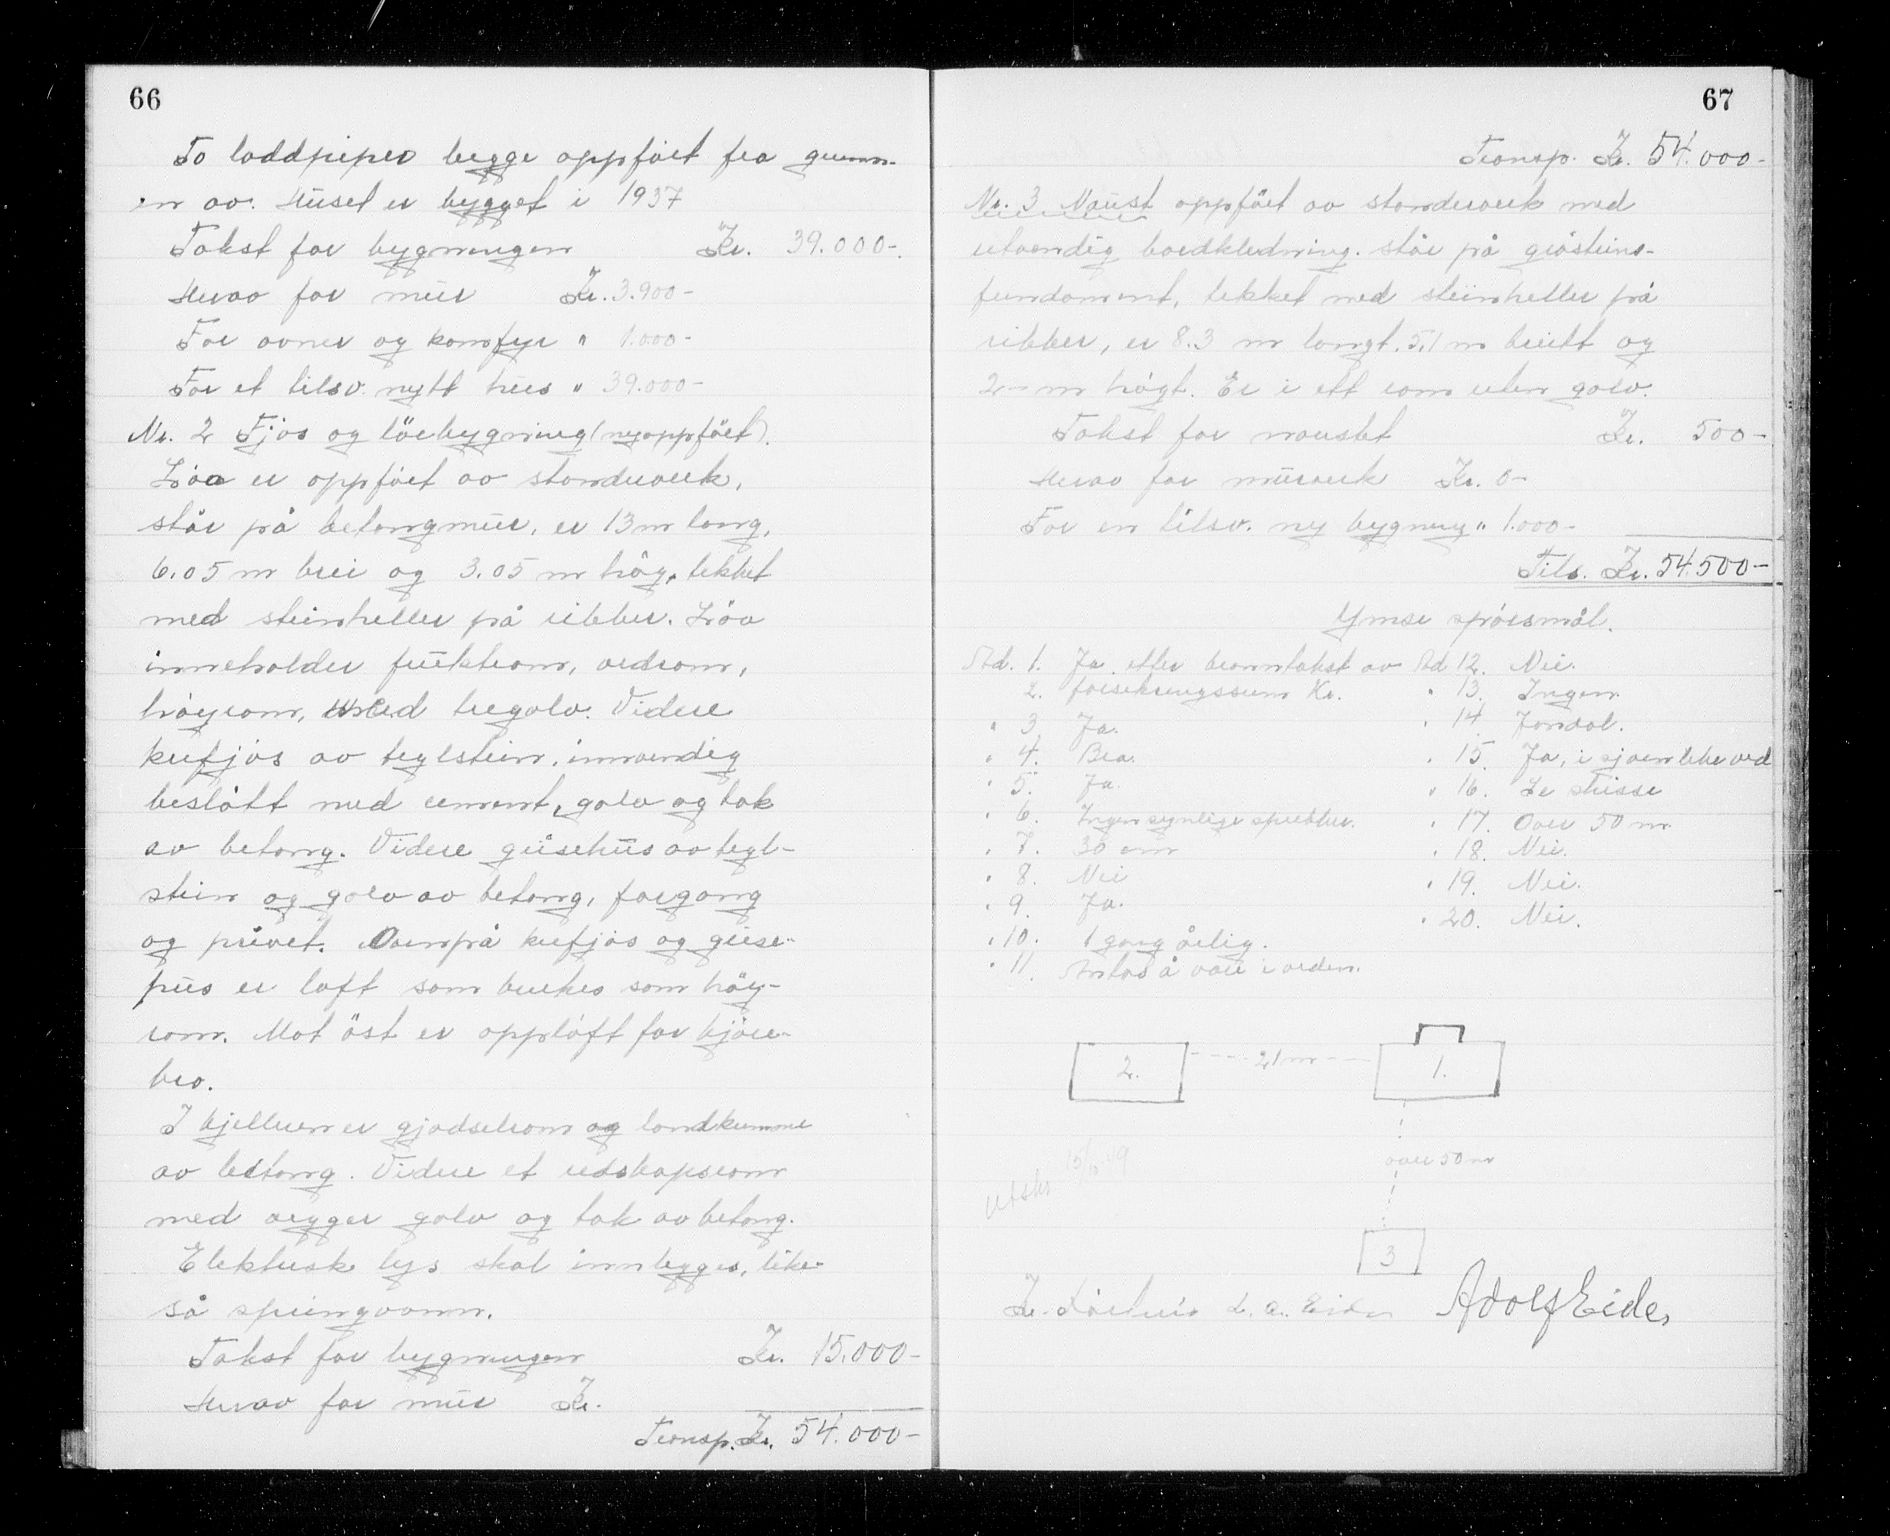 66
To loddpiper begge oppført fra grunn-
en av. Huset er bygget i 1937
Takst for bygningen Kr. 39.000-.
Herav for mur Kr. 3.900-
For ovner og komfyr " 1.000-
For et tilsv. nytt hus " 39.000-
Nr. 2 Fjøs og löebygning (nyoppfört).
Löa er oppfört av standverk,
står på betongmur, er 13 m lang,
6.05 m brei og 3.05 m høg, tekket
med steinheller på ribber. Löa
inneholder fruktrom, vedrom,
höyrom, med tregolv. Videre
kufjös av teglstein, innvendig
beslått med cement, golv og tak
av betong. Videre grisehus av tegl-
stein og golv av betong, forgang
og privet. Ovenpå kufjös og grise-
hus er loft som brukes som höy-
rom. Mot öst er oppløft for kjöre-
bro.
I kjelleren er gjødselrom og landkumme
av betong. Videre et redskapsrom
med vegger golv og tak av betong.
Elektrisk lys skal innlegges, like-
så springvann.
Takst for bygningen Kr. 15.000-
Herav for mur Kr.
Transp. Kr. 54.000-
67
Transp. Kr. 54.000-
Nr. 3 Naust oppfört av standverk med
utvendig bordkledning. står på gråsteins-
fundament, tekket med steinheller på
ribber, er 8.3 m langt, 5,1 m breitt og
2- m högt. Er i ett rom uten golv.
Takst for naustet Kr. 500-
Herav for murverk Kr. 0-
For en tilsv. ny bygning " 1.000-
Tils. Kr. 54.500-
Ymse spörsmål.
Ad. 1. Ja etter branntakst av Ad 12. Nei.
2. forsikringssum Kr. " 13. Ingen
" 3. Ja. " 14 Jondal.
" 4. Bra. " 15. Ja, i sjøen like ved
" 5. Ja. " 16. Se skisse
" 6. Ingen synlige sprekker. " 17. Over 50 m
" 7. 30 cm " 18. Nei.
" 8. Nei " 19. Nei.
" 9. Ja. " 20. Nei.
" 10. 1 gang årlig.
" 11. Antas å vere i orden.
2. 21 m 1.
over 50 m
Utskr 15/10 49
3
L. A. Eide Adolf Eide,